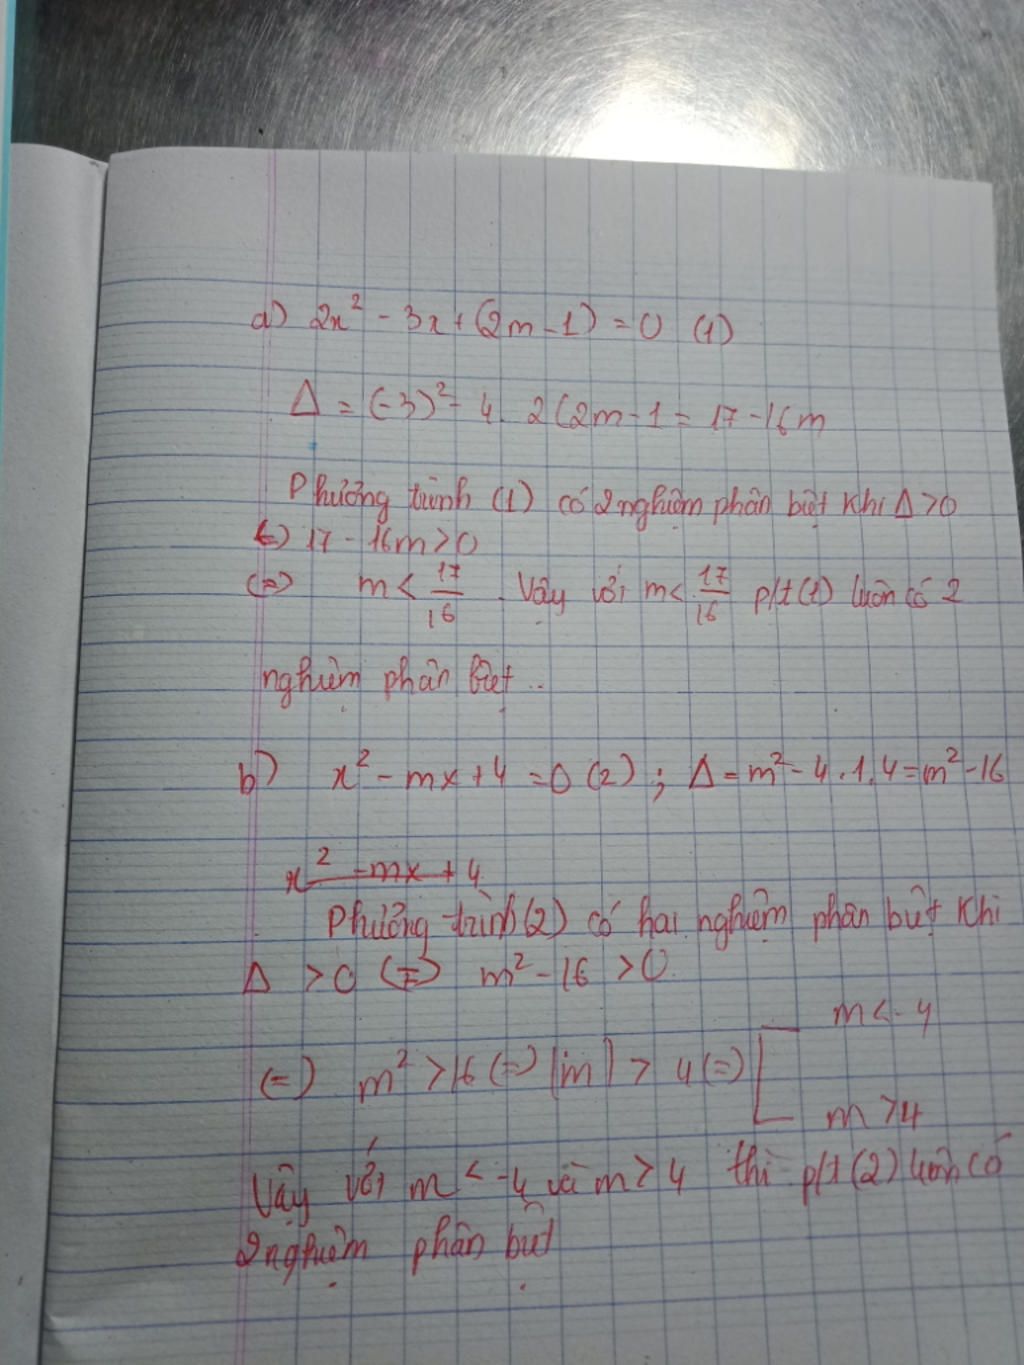 a) 2x² - 3x + (2m - 1) = 0 (1)
Δ = (-3)² - 4. 2(2m - 1 = 17 - 16m
Phương trình (1) có 2 nghiệm phân biệt khi Δ > 0
(=) 17 - 16m > 0
(=) m < 17/16 . Vậy với m < 17/16 p/t (1) luôn có 2
nghiệm phân biệt..
b) x² - mx + 4 = 0 (2) ; Δ = m² - 4.1.4 = m² - 16
x² - mx + 4
Phương trình (2) có hai nghiệm phân biệt khi
Δ > 0 (=) m² - 16 > 0.
(=) m² > 16 (=) |m| > 4 (=) [ m < -4
m > 4
Vậy với m < -4 và m > 4 thì p/t (2) luôn có
2 nghiệm phân biệt